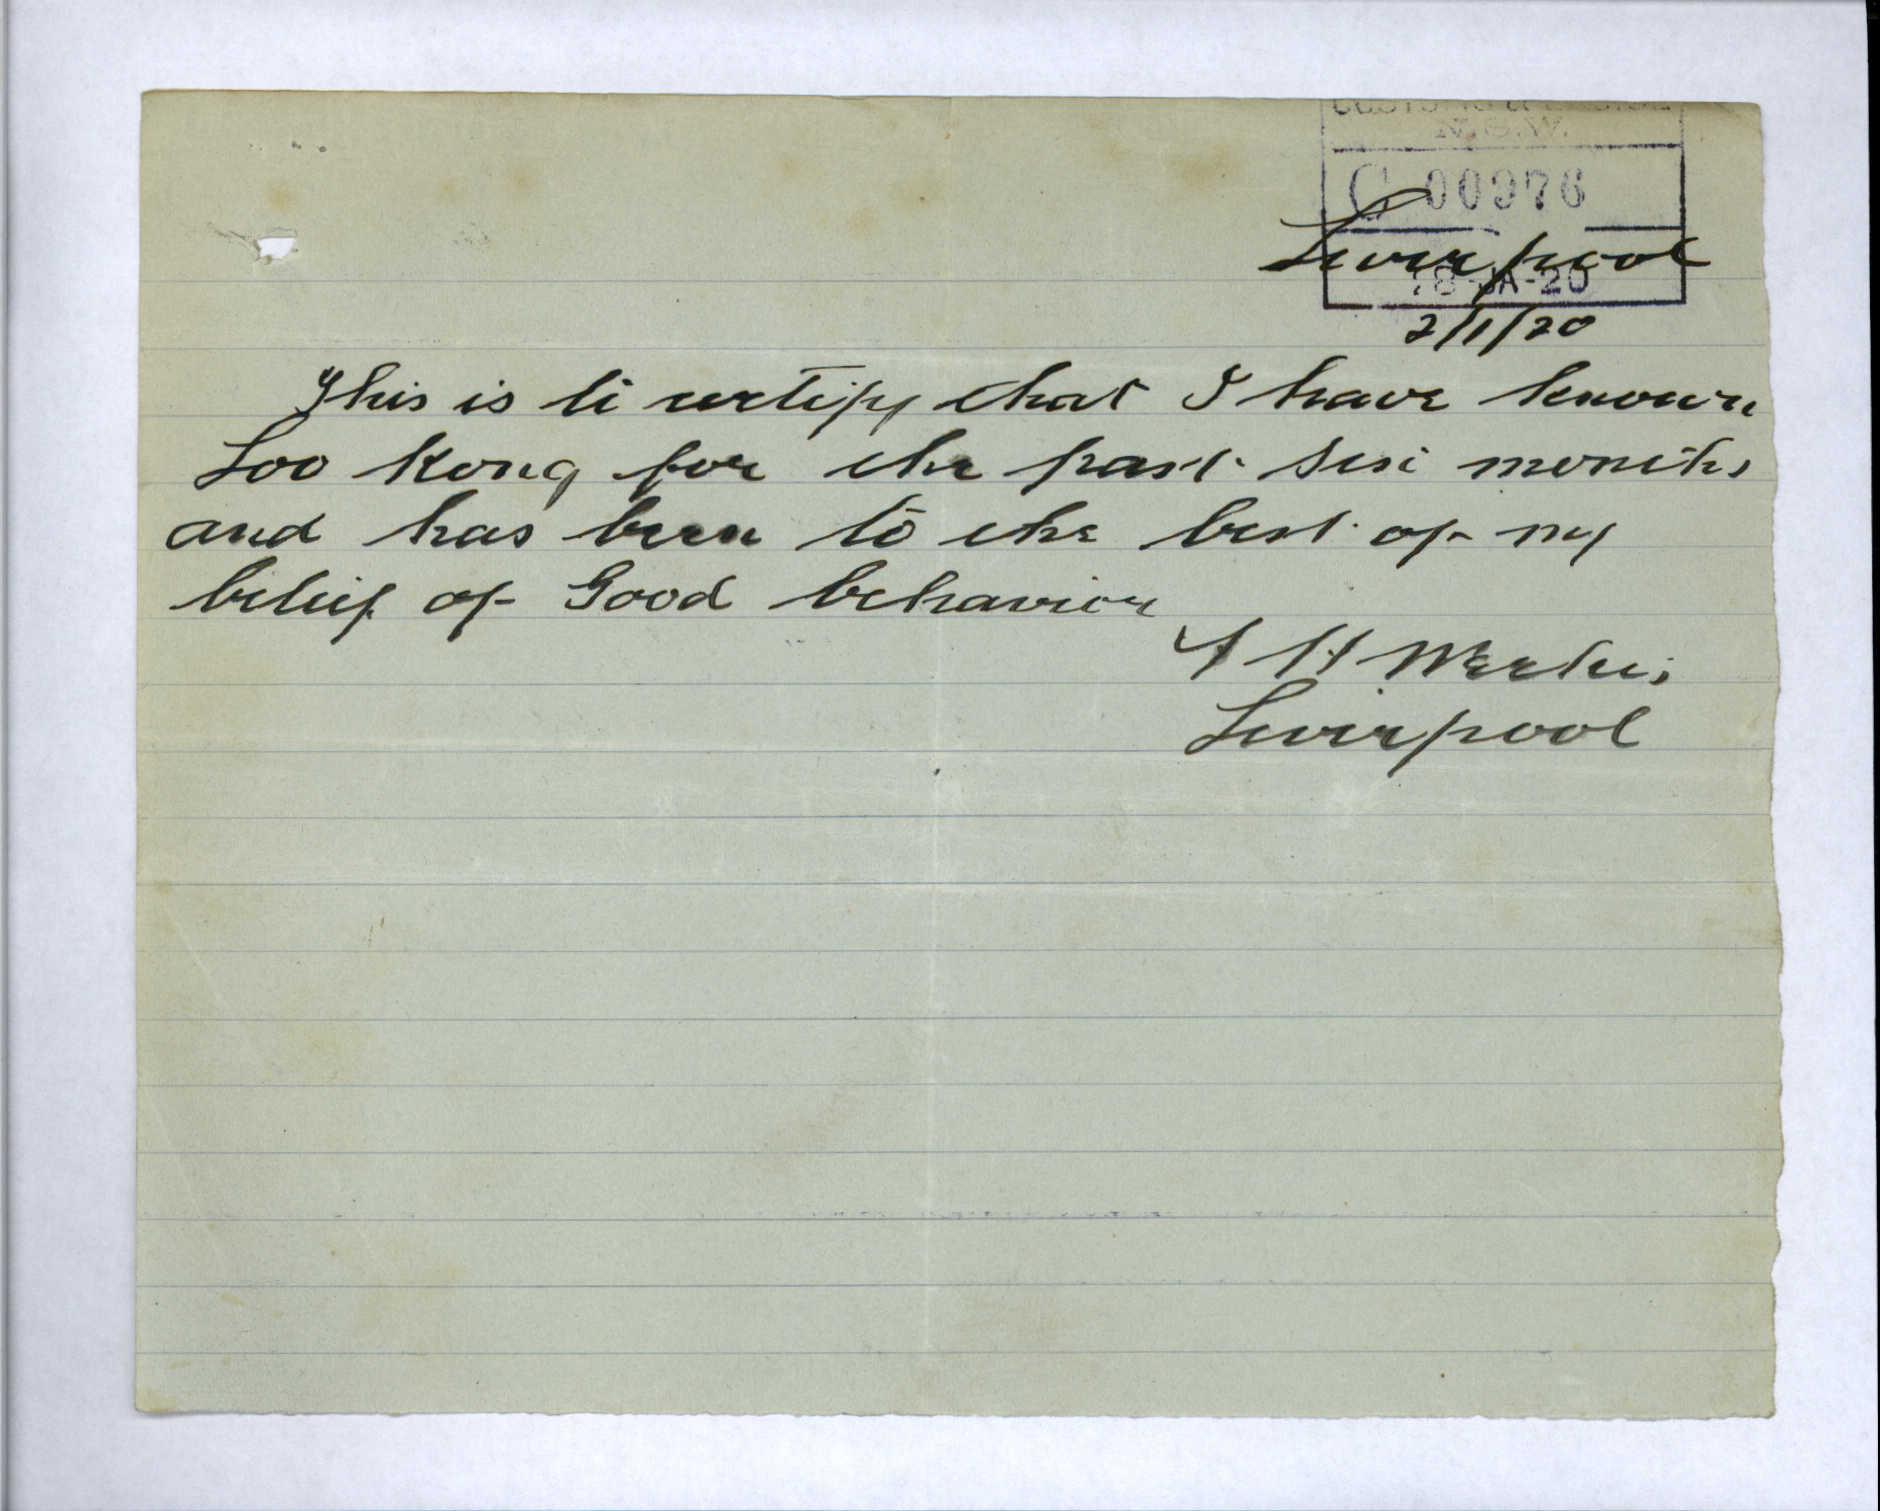 N.S.W.
C 00976
Liverpool
18 JA-20
2/1/20
This is to certify that I have known
Loo Kong for the past six months
and has been to the best of my
belief of Good behavior
H
Liverpool